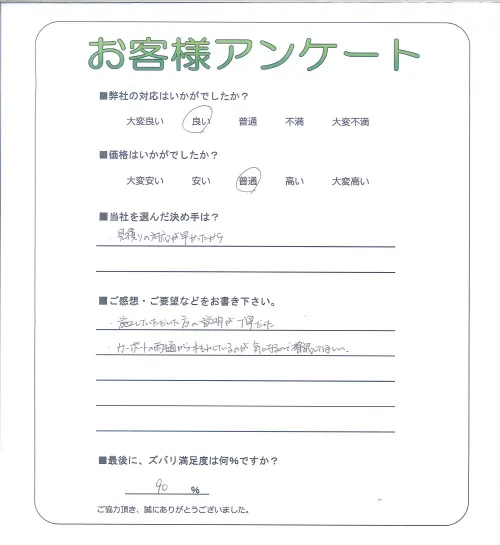 お客様アンケート
■弊社の対応はいかがでしたか？
大変良い 良い 普通 不満 大変不満
■価格はいかがでしたか？
大変安い 安い 普通 高い 大変高い
■当社を選んだ決め手は？
・見積りの対応が早かったから
■ご感想・ご要望などをお書き下さい。
・施工していただいた方の説明が丁寧だった
・カーポートの雨樋から水もれしているのが気になるので確認してほしい。
■最後に、ズバリ満足度は何%ですか？
90 %
ご協力頂き、誠にありがとうございました。